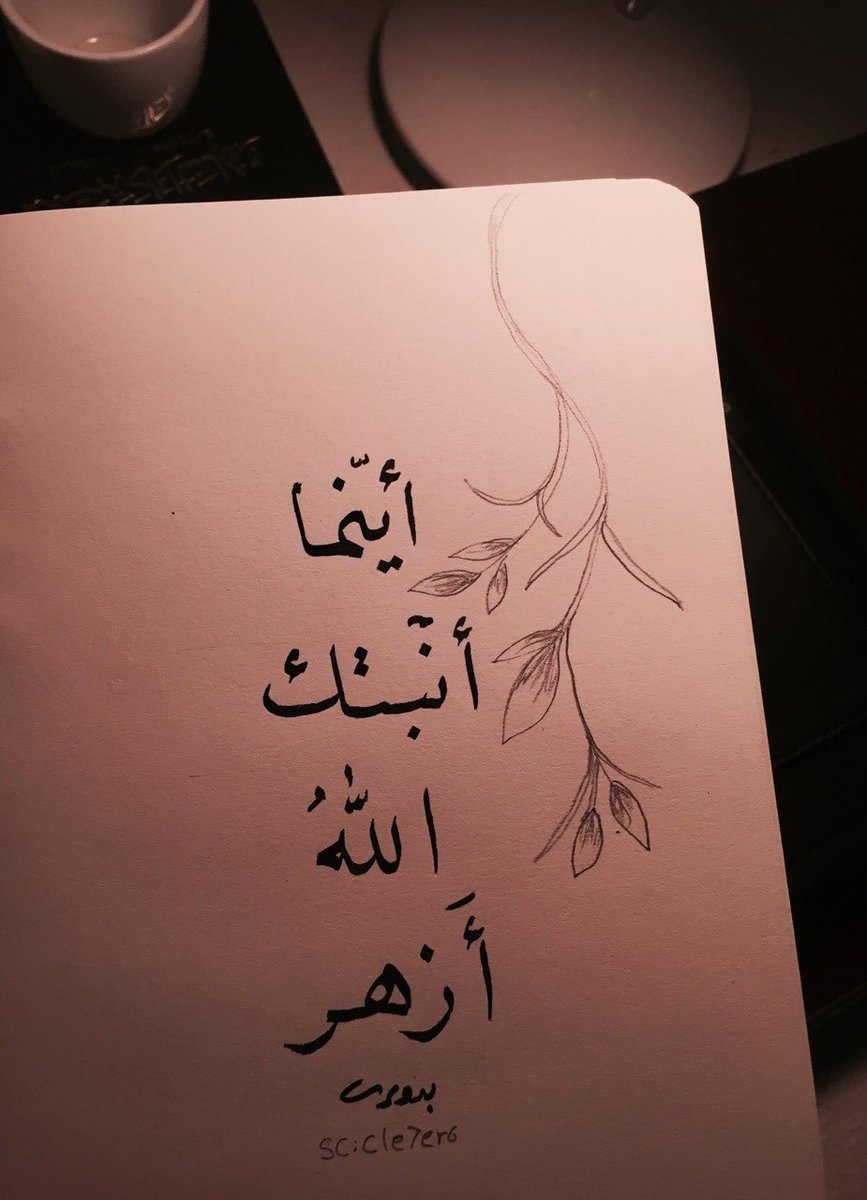 أيّنما
أنبتك
اللّٰهُ
أَزهر
scicle7er6